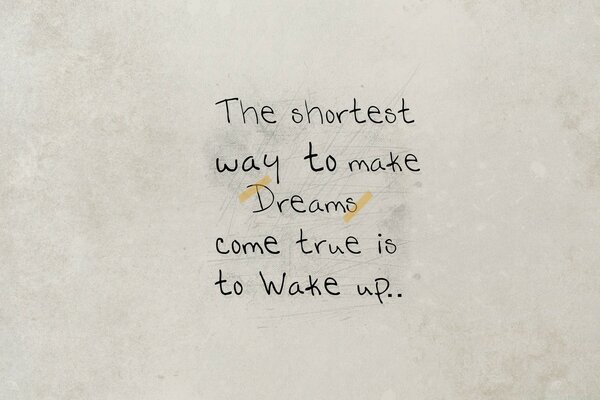 The shortest
way to make
Dreams
come true is
to Wake up..